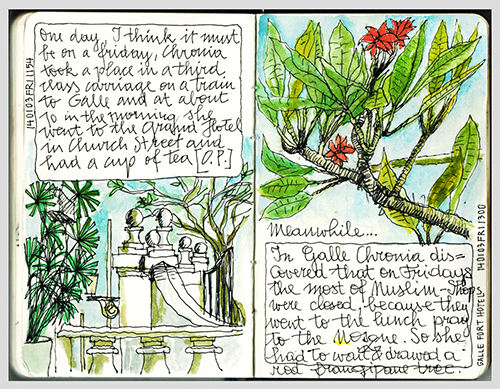 One day, I think it must
be on a friday, Chronia
took a place in a third
class carriage on a train
to Galle and at about
10 in the morning she
went to the Grand Hotel
in Church Street and
had a cup of tea [O.P.]
140103FRI1154
Meanwhile...
In Galle Chronia dis=
covered that on Fridays
the most of Muslim-Shops
were closed, because they
went to the lunch pray
to the Mosque. So she
had to wait & drawed a
red frangipane tree.
GALLE FORT HOTEL 140103FRI1300